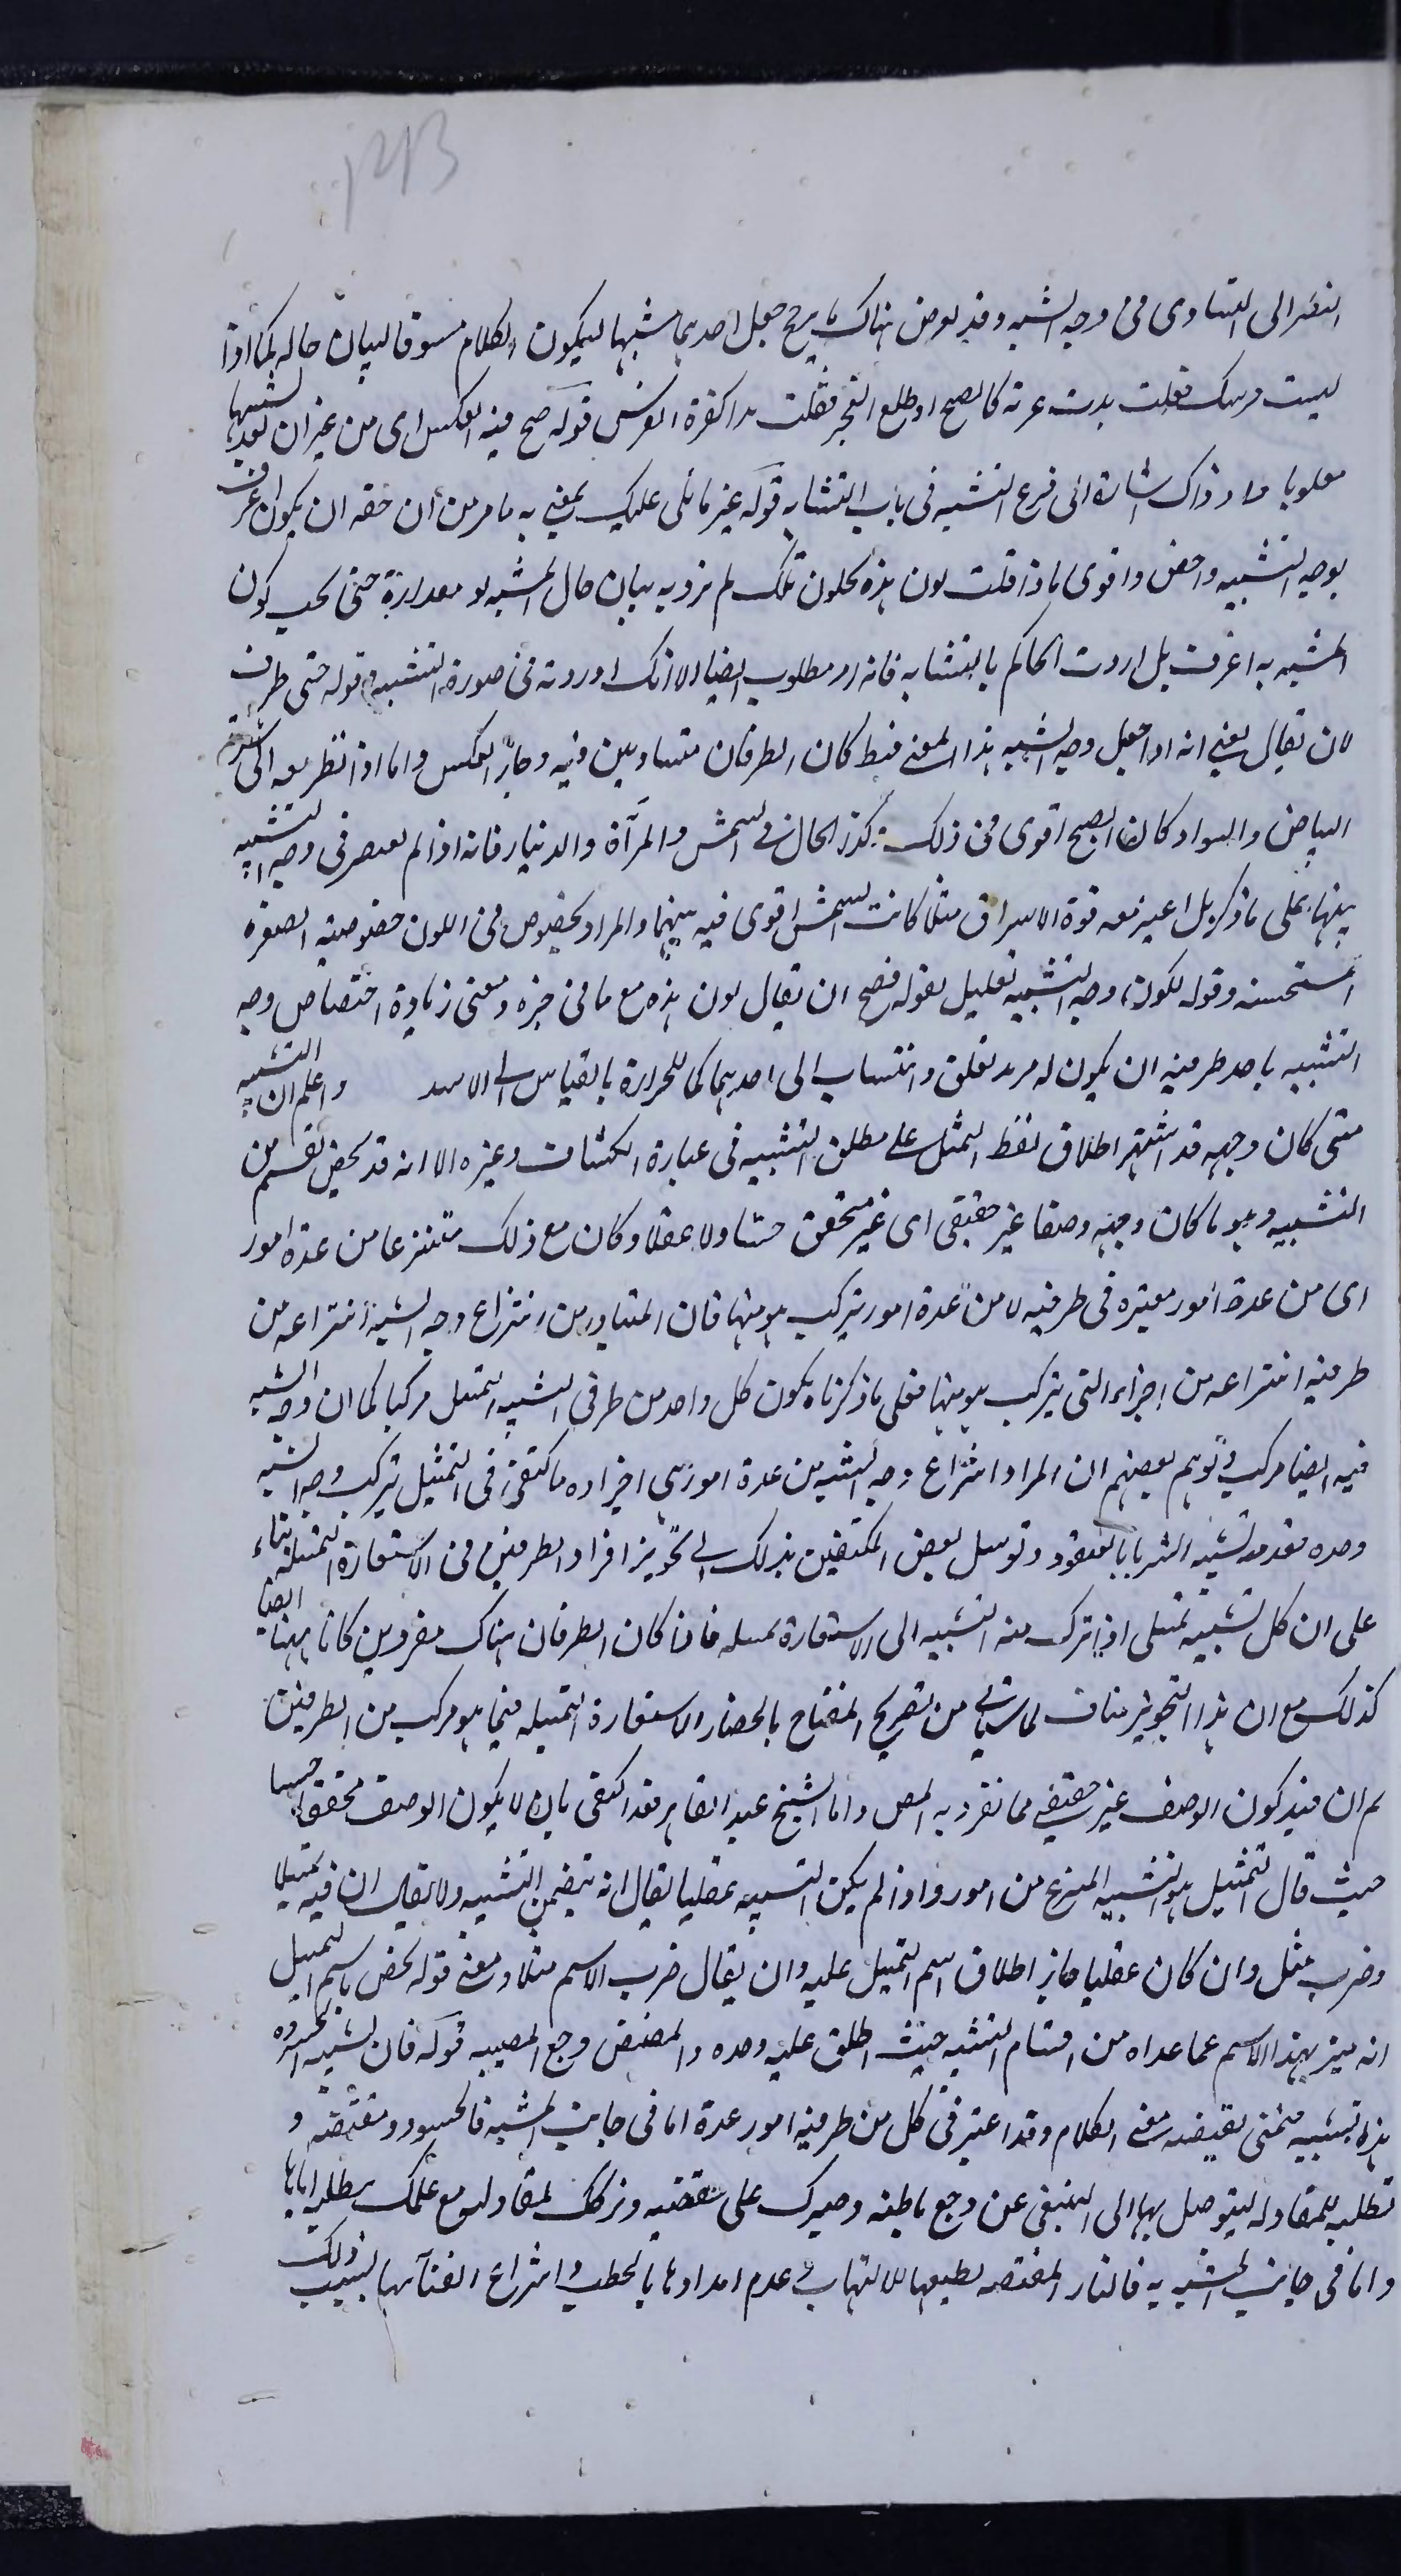 النظر الى التساوى فى وجه الشبه وقد يعرض هناك ما يرجح جعل احدهما مشبها ليكون الكلام مسوقا لبيان حاله كما اذا
فرسك فقلت بدت غرته كالصبح او طلع الفجر فقلت بدا كغرة الفرس قوله صح فيه العكس اى من غير ان يعد تشبيها
مقلوبا وذاك اشارة الى فرع التشبيه فى باب التشابه قوله غير ما تلى عليك يعنى به ما مر من ان حقه ان يكون اعرف
بوجه التشبيه واخص واقوى فاذا قلت لون هذه كلون تلك لم ترد به بيان حال المشبه او مقداره حتى يجب كون
المشبه به اعرف بل اردت الحكم بالتشابه فانه امر مطلوب ايضا الا انك اوردته فى صورة التشبيه قوله حتى طرف
لان يقال يعنى انه اذا جعل وجه الشبه هذا المعنى فقط كان الطرفان متساويين فيه وجاز العكس واما اذا نظر معه الى
البياض والسواد كان الصبح اقوى فى ذلك وكذا الحال فى الشمس والمرآة والدينار فانه اذا لم يقتصر فى وجه التشبيه
بينها على ما ذكر بل اعتبر معه قوة الاشراق مثلا كانت الشمس اقوى فيه بينهما والمراد بخصوص فى اللون خصوصية الصفرة
المستحسنة وقوله لكونه وجه التشبيه تعليل لقوله فصح ان يقال لون هذه مع ما فى حيزه ومعنى زيادة اختصاص وجه
التشبيه باحد طرفيه ان يكون له مزيد تعلق وانتساب الى احدهما كما للجراءة بالقياس الى الاسد واعلم ان التشبيه
متى كان وجهه قد اشتهر اطلاق لفظ التمثيل على مطلق التشبيه فى عبارة الكشاف وغيره الا انه قد يخص بقسم من
التشبيه وهو ما كان وجهه وصفا غير حقيقى اى غير متحقق حسا ولا عقلا وكان مع ذلك منتزعا من عدة امور
اى من عدة امور معتبرة فى طرفيه لا من عدة امور يتركب هو منها فان المتبادر من انتزاع وجه الشبه انتزاعه من
طرفيه انتزاعه من اجزاء التى يتركب هو منها فعلى ما ذكرناه يكون كل واحد من طرفى التشبيه التمثيل مركبا كما ان وجه الشبه
فيه ايضا مركب وتوهم بعضهم ان المراد انتزاع وجه الشبه من عدة امور هى اجزاؤه فاكتفى فى التمثيل بتركب وجه الشبه
وحده فعد منه تشبيه الثريا بالعنقود وتوسل بعض المكتفين بذلك الى تجويز افراد الطرفين فى الاستعارة التمثيلية بناء
على ان كل تشبيه تمثيلى اذا ترك منه التشبيه الى الاستعارة تمثيلية فاذا كان الطرفان هناك مفردين كانا ههنا ايضا
كذلك مع ان هذا التجويز مناف لما سيأتى من تصريح المفتاح بانحصار الاستعارة التمثيلية فيما هو مركب من الطرفين
ثم ان قيد كون الوصف غير حقيقى مما تفرد به المص واما الشيخ عبد القاهر فقد اكتفى بان لا يكون الوصف محققا حسيا
حيث قال التمثيل هو التشبيه المنتزع من امور واذا لم يكن التشبيه عقليا يقال انه يتضمن التشبيه ولا يقال ان فيه تمثيلا
وضرب مثل وان كان عقليا جاز اطلاق اسم التمثيل عليه وان يقال ضرب الاسم مثلا ومعنى قوله يخص باسم التمثيل
انه ميز بهذا الاسم عما عداه من اقسام التشبيه حيث اطلق عليه وحده والمضض وجع المصيبة قوله فان تشبيه الحسود
هذا تشبيه معنى الكلام وقد اعتبر فى كل من طرفيه امور عدة اما فى جانب المشبه فالحسود و
تطلبه للمقاولة ليتوصل بها الى التشفى عن وجع باطنه وصبرك على وتركك لمقاولته مع علمك بطلبه اياها
واما فى جانب المشبه به فالنار المقتضية بطبعها للالتهاب وعدم امدادها بالحطب واسراع افنائها بسبب ذلك